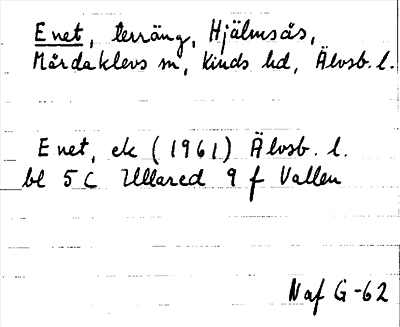 Enet, terräng, Hjälmsås,
Mårdaklevs sn, Kinds hd, Älvsb. l.
Enet, ek (1961) Älvsb. l.
bl 5C Ullared 9 f Vallen
Naf G-62